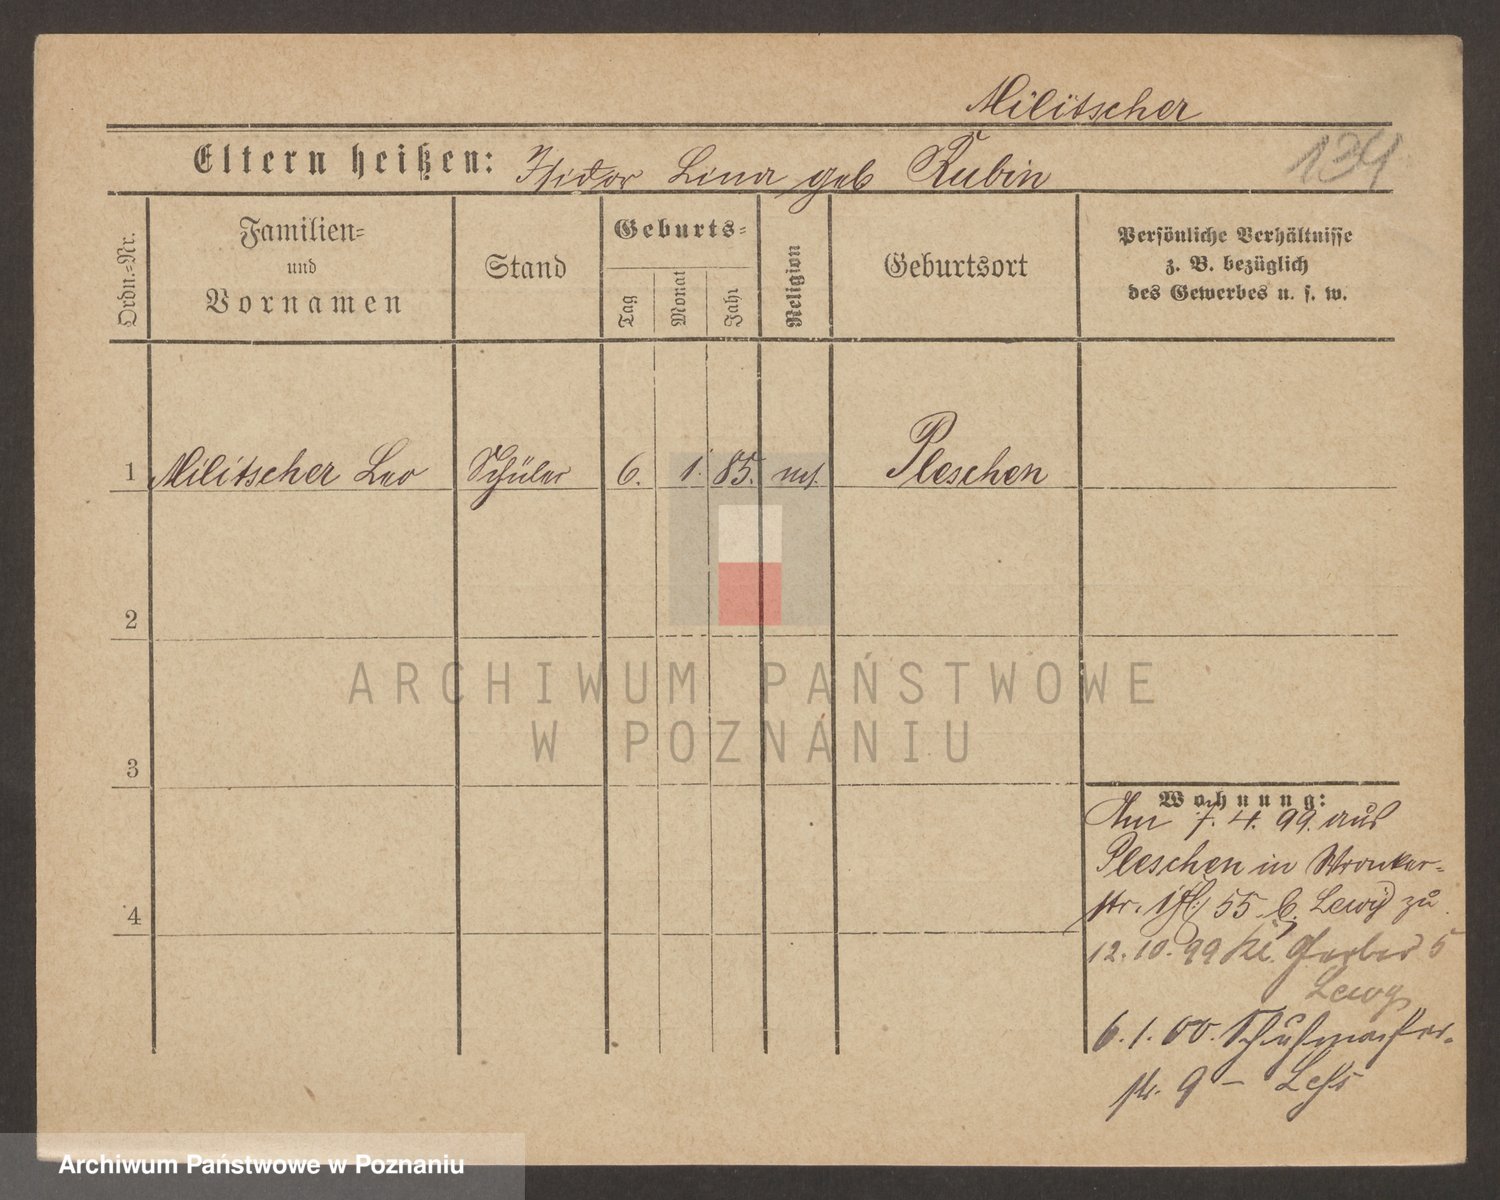 Militscher
134
Eltern heißen: Isidor Lina geb Rubin
Ordn.=Nr.
Familien=
und
Vornamen
Stand
Geburts=
Tag
Monat
Jahr
Religion
Geburtsort
Persönliche Verhältnisse
z. B. bezüglich
des Gewerbes u. s. w.
1 Militscher Leo Schüler 6. 1. 85. mos. Pleschen
2
3
4
Wohnung:
Am 7. 4. 99. aus
Pleschen in Wronker=
str. 55 b. Lewy zu
12. 10. 99 Kl. Gerber 5
Lewy
6. 1. 00. Schuhmacher-
str. 9 –
ARCHIWUM PAŃSTWOWE
W POZNANIU
Archiwum Państwowe w Poznaniu